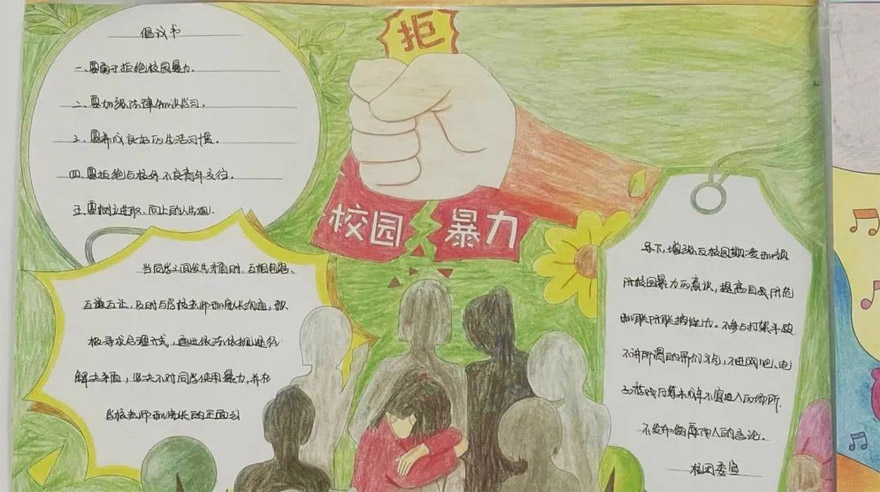 倡议书
一、要勇于拒绝校园暴力.
二、要加强法律知识学习.
三、要养成良好的生活习惯.
四、要拒绝与校外不良青年交往.
五、要树立进取、向上的人生观.
拒
校园
暴力
当同学之间发生矛盾时，互相包容、
互谦互让，及时与学校老师和家长沟通，积
极寻求合理方式，通过依法依规途径
解决矛盾，坚决不对同学使用暴力，并在
学校老师和家长的正面引
导下，增强反校园欺凌和预
防校园暴力的意识，提高自我防范
不参与打架斗殴
不讲所谓的哥们义气，不进网吧、电
子游戏厅等未成年不宜进入的场所.
不发布侮辱他人的言论.
校园